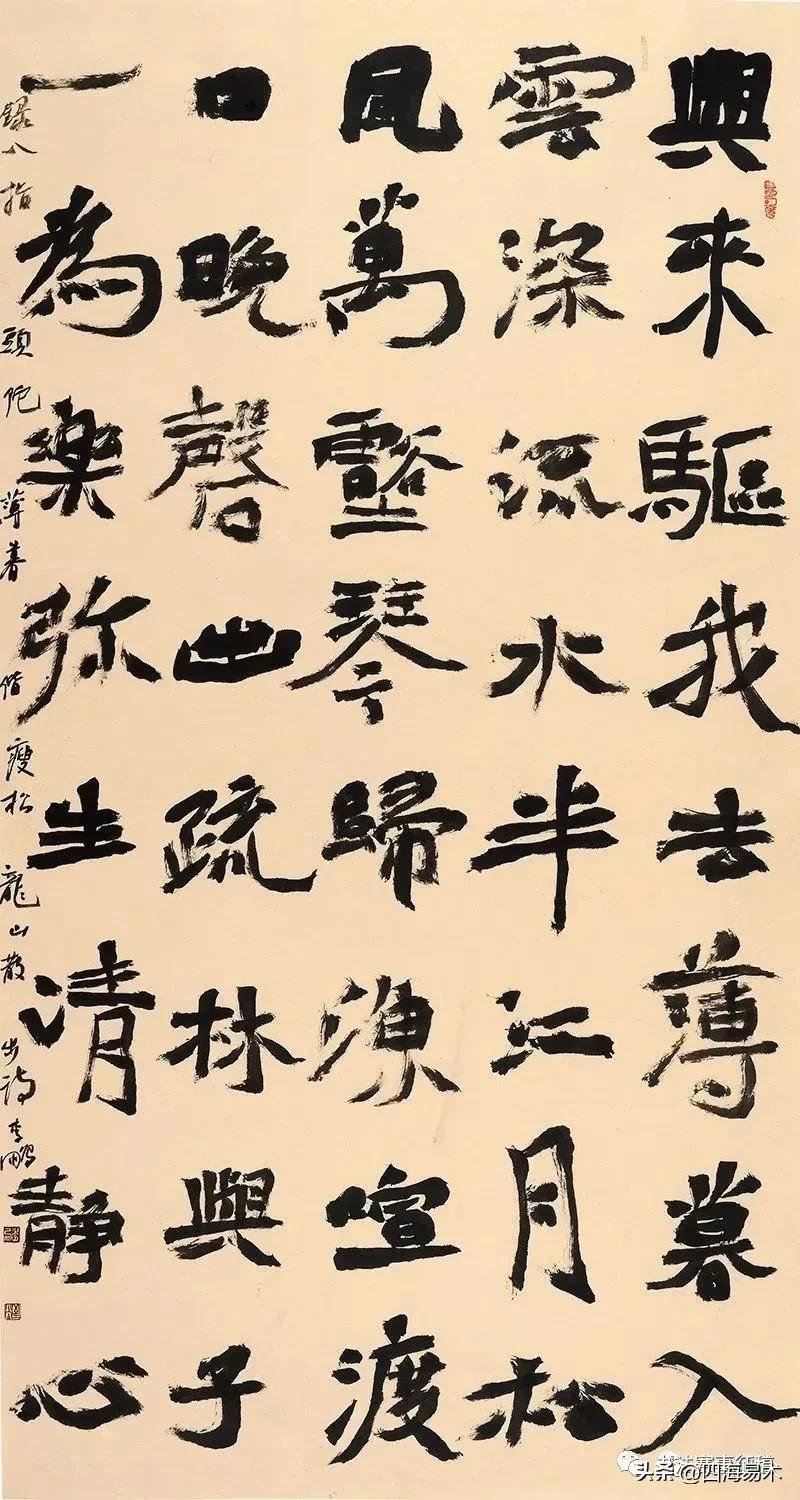 興來驅我去薄暮入
雲深流水半江月松
風萬壑琴歸漁喧渡
口晚磬出疏林與子
一為樂弥生清静心
録八指頭陀薄暮偕瘦松龍山散步詩李鵬
头条@四海易木